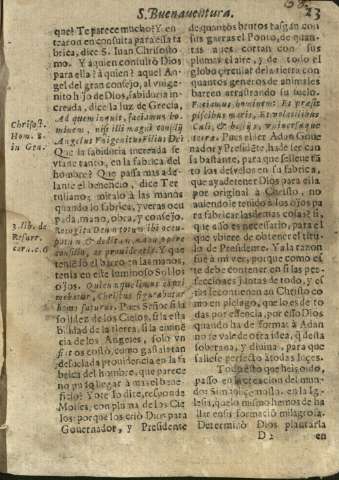 S. Buenaventura.
23
que? Te parece mucho? Y en-
traron en consulta para essa fa
brica, dize S. Iuan Chrisosto
mo. Y a quien consultò Dios
para ella? à quien? aquel An-
gel del gran consejo, al vnige-
nito hijo de Dios, sabiduria in-
creida, dice la luz de Grecia,
Ad quem inquit, faciamus ho-
minem, nisi illi magni consilij
Angelus Vnigenitus Filius Dei?
Que la sabiduria increida se
vtane tanto, en la fabrica del
hombre? Que passa mas ade-
lante el beneficio, dice Ter
tuliano; miralo à las manos
quando lo fabrica, y veras ocu
pada, mano, obra, y consejo.
Recogita Deum totum ibi occu
patum & deditum, manu, opere
consilio, & providentia. Y que
tenia
Christost.
Hom. 8.
in Gen.
3. lib. de
Resurr.
carn. c. 6
tenia el barro en las manos,
tenia en este luminoso Sol los
ojos.
Pues Señor si la
solidez de los Cielos, si la esta
bilidad de la tierra, si la eminẽ
cia de los Angeles, solo vn
fiat os costò, como gastais tan
desuelada prouidencia en la fa
brica del hombre, que parece
no pudo llegar à mas el bene-
ficio? Yo te lo dirè, responde
Moises, con pluma de los Cie
los: porque los criò Dios para
Gouernador, y Presidente
de quantos brutos rasgan con
sus garras el Ponto, de quan-
tas aues cortan con sus
plumas el aire, y de todo el
globo circular de la tierra con
quantos generos de animales
barren arrastrando su suelo.
Faciamus hominem: Et præsit
piscibus maris, Et volatilibus
Cæli, & bestijs, vniuersæque
terræ. Pues el ser Adan Gouer
nador y Presidẽte, ha de ser cau
sa bastante, para que se lleue tã
to los desvelos en su fabrica,
que ayude tener Dios para ella
por original à Christo, no
auiendole tenido à los ojos pa
ra fabricar las demas cosas? si,
que assi es necessario, para el
que vbiere de obtener el titu-
lo de Presidente. Y a la razon
fue à mi ver, porque como es
te debe contener en si las per-
fecciones juntas de todo, y es-
tas se contienen en Christo co
mo en pielago, que lo es de to
das por essencia, por esso Dios
quando ha de formar à Adan
no se vale de otra idea, q̃ desta
soberana, y diuina, para que
saliesse perfecto à todas luces.
Todo esto que heis oido,
passò en la creacion del mun-
do: Sin quitar nada en la Igle
sia, que lo mismo hemos de ha
llar en su formaciõ milagrosa.
Determinò Dios plantarla
D 2
en